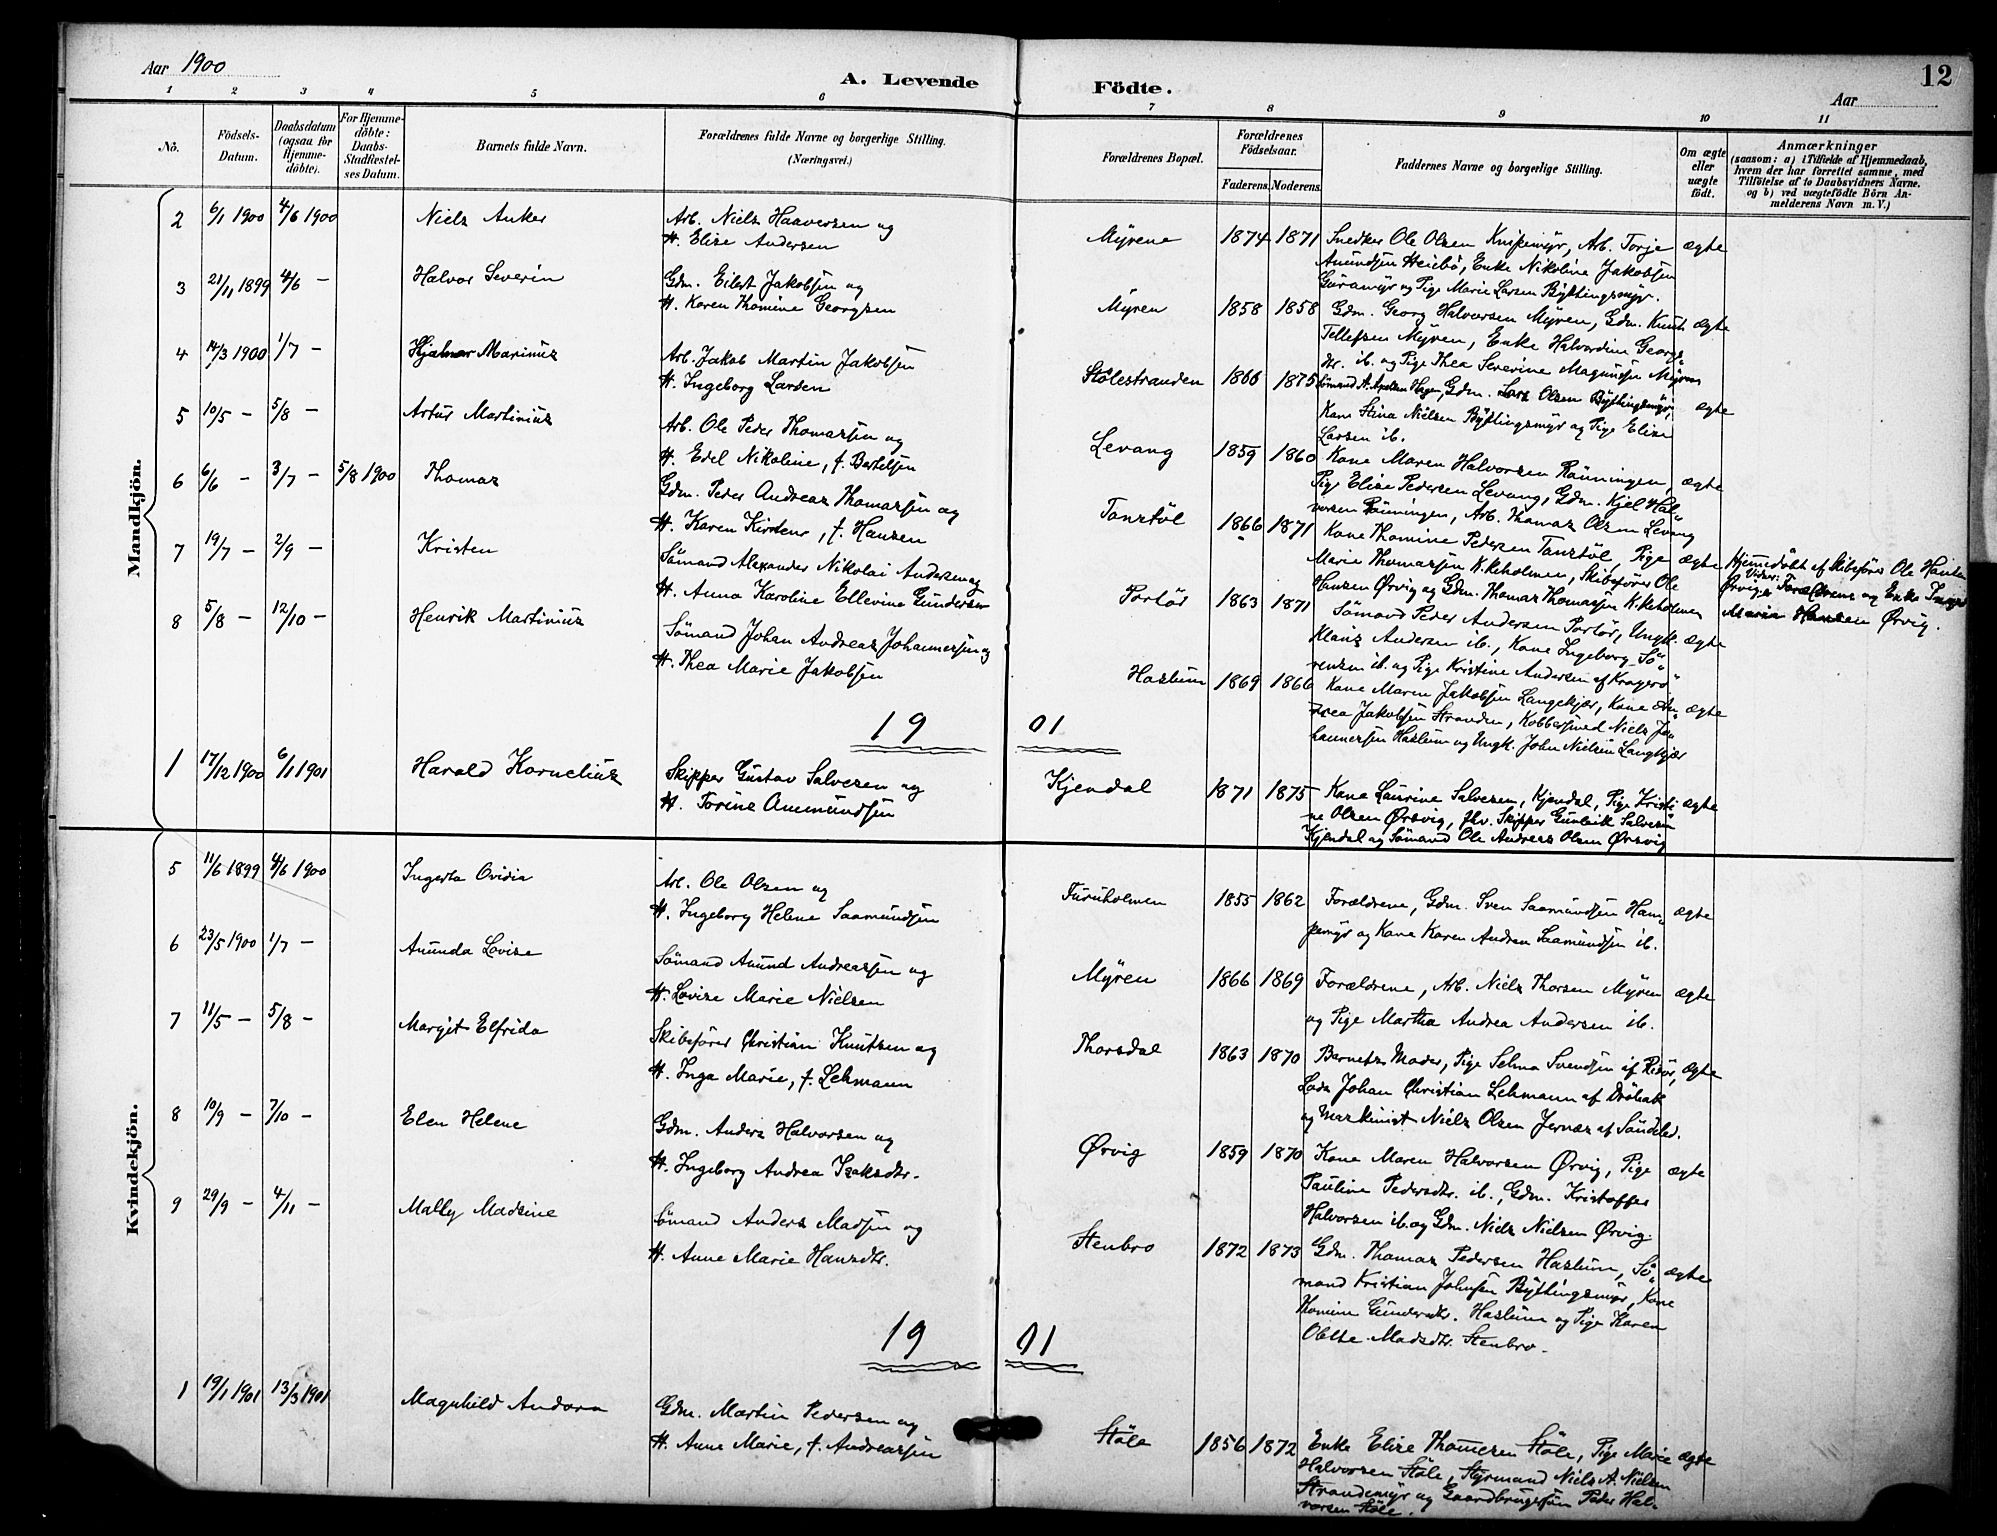 Aar 1900
A. Levende Födte.
12
Aar
1 2 3 4 5 6 7 8 9 10 11
No.
Födsels-Datum.
Daabsdatum (ogsaa for Hjemmedöbte).
For Hjemmedöbte: Daabs-Stadfæstelses Datum.
Barnets fulde Navn.
Forældrenes fulde Navne og borgerlige Stilling.
(Næringsvei.)
Forældrenes Bopæl.
Forældrenes Födselsaar.
Faderens. Moderens.
Faddernes Navne og borgerlige Stilling.
Om ægte eller uægte födt.
Anmærkninger
(saasom: a) i Tilfælde af Hjemmedaab, hvem der har forrettet samme, med Tilföielse af to Daabsvidners Navne, og b) ved uægtefödte Börn Anmelderens Navn m. V.)
Mandkjön.
2 6/1 1900 4/6 1900 Niels Anker
Arb. Niels Haaversen og
H. Elise Andersen
Myrene 1874 1871
Snedker Ole Olsen Knipemyr, Arb. Torje ægte
Anundsen Heiebö, Enke Nikoline Jakobsen
Guramyr og Pige Marie Larsen Byttingsmyr.
3 21/11 1899 4/6 – Halvor Severin
Gdm. Eilert Jakobsen og
H. Karen Thomine Georgsen
Myren 1858 1858
Gdm. Georg Halvorsen Myren, Gdm. Knut ægte
Tellefsen Myren, Enke Halvordine Georgs-
dtr. ib. og Pige Thea Severine Magnusen Myren
4 14/3 1900 1/7 – Hjalmar Marinius
Arb. Jakob Martin Jakobsen
H. Ingeborg Larsen
Stölestranden 1866 1875
Sömand A. Apelsen Hagen, Gdm. Lars Olsen Byttingsmyr, ægte
Kone Stina Nielsen Byttingsmyr og Pige Elise
Larsen ib.
5 10/5 – 5/8 – Artur Martinius
Arb. Ole Peder Thomassen og
H. Edel Nikoline, f. Bertelsen
Levang 1859 1860
Kone Maren Halvorsen Rönningen, ægte
Pige Elise Pedersen Levang, Gdm. Kjel Hal-
vorsen Rönningen, Arb. Thomas Olsen Levang
6 6/6 – 3/7 – 5/8 1900 Thomas
Gdm. Peder Andreas Thomassen og
H. Karen Kirstene, f. Hansen
Tanstöl 1866 1871
Kone Thomine Pedersen Tanstöl, Pige ægte
Marie Thomassen Kirkeholmen, Skibsförer Ole
Hansen Ørvig og Gdm. Thomas Thomassen Kirkeholmen
Hjemmedöbt af Skibsförer Ole Hansen
Ørvig. Vidner: Forældrene og Enke Inger
Maria Hansen Ørvig.
7 19/7 – 2/9 – Kristen
Sömand Alexander Nikolai Andersen og
H. Anna Karoline Ellevine Gundersen
Portör 1863 1871
Sömand Peder Andersen Portör, Ungk. ægte
Klaus Andersen ib., Kone Ingeborg Sö-
rensen ib. og Pige Kristine Andersen af Kragerö
8 5/8 – 12/10 – Henrik Martinius
Sömand Johan Andreas Johannessen og
H. Thea Marie Jakobsen
Haslum 1869 1866
Kone Maren Jakobsen Langekjær, Kone An- ægte
drea Jakobsen Stranden, Kobbersmed Niels Jo-
hannessen Haslum og Ungk. John Nielsen Langkjær
1901
1 17/12 1900 6/1 1901 Harald Kornelius
Skipper Gustav Salvesen og
H. Torine Ammundsen
Kjendal 1871 1875
Kone Laurine Salvesen, Kjendal, Pige Kristi- ægte
ne Olsen Ørsvig, fhv. Skipper Gunleik Salvesen
Kjendal og Sömand Ole Andreas Olsen Ørsvig
Kvindekjön.
5 11/6 1899 4/6 1900 Ingerta Ovidia
Arb. Ole Olsen og
H. Ingeborg Helene Saamundsen
Furuholmen 1855 1862
Forældrene, Gdm. Sven Saamundsen Ham- ægte
pemyr og Kone Karen Andrea Saamundsen ib.
6 23/5 1900 1/7 – Anunda Lovise
Sömand Anund Andreassen og
H. Lovise Marie Nielsen
Myren 1866 1869
Forældrene, Arb. Niels Thorsen Myren ægte
og Pige Martha Andrea Andersen ib.
7 11/5 – 5/8 – Margit Elfrida
Skibsförer Christian Knutsen og
H. Inga Marie, f. Lehmann
Thorsdal 1863 1870
Barnets Moder, Pige Selma Svendsen af Risör, ægte
Lods Johan Christian Lehmann af Dröbak
og Maskinist Niels Olsen Jernæs af Söndeled.
8 10/9 – 7/10 – Elen Helene
Gdm. Anders Halvorsen og
H. Ingeborg Andrea Isaksdtr.
Ørvig 1859 1870
Kone Maren Halvorsen Ørvig, Pige ægte
Pauline Pedersdtr. ib., Gdm. Kristoffer
Halvorsen ib. og Gdm. Niels Nielsen Ørvig.
9 29/9 – 4/11 – Mally Madsine
Sömand Anders Madsen og
H. Anne Marie Hansdtr.
Stenbro 1872 1873
Gdm. Thomas Pedersen Haslum, Sö- ægte
mand Kristian Johnsen Byttingsmyr, Kone
Thomine Gundersdtr. Haslum og Pige Karen
Olethe Madsdtr. Stenbro.
1901
1 19/1 1901 13/3 1901 Magnhild Andora
Gdm. Martin Pedersen og
H. Anne Marie, f. Andreassen
Stöle 1856 1872
Enke Elise Thomesen Stöle, Pige Marie ægte
Halvorsen Stöle, Styrmand Niels A. Nielsen
Strandemyr og Gaardbrugersön Peder Hal-
vorsen Stöle.